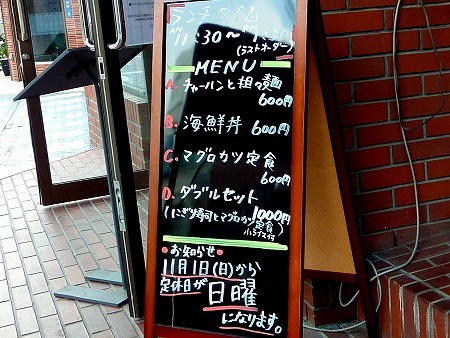 ランチタイム
AM 11:30～
(ラストオーダー)
MENU
A. チャーハンと担々麺
600円
B. 海鮮丼 600円
C. マグロカツ定食
600円
D. ダブルセット
(にぎり寿司とマグロカツ 1000円
定食
小ライス付
・お知らせ・
11月1日(日)から
定休日が 日曜
になります。